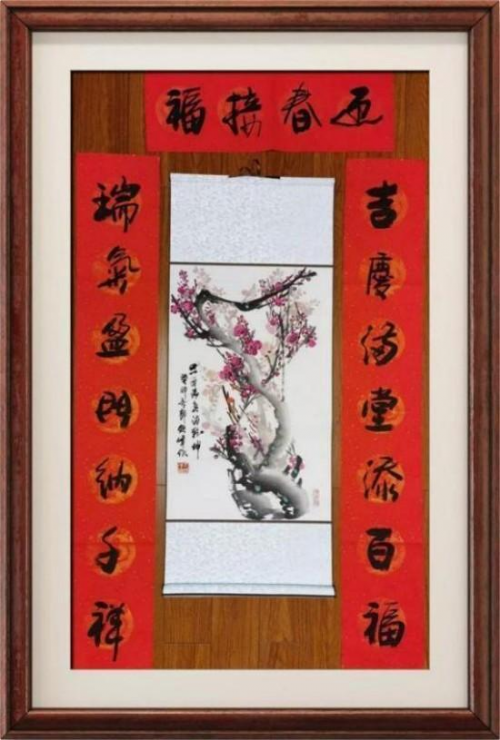 迎春接福
吉慶滿堂添百福
瑞氣盈門納千祥